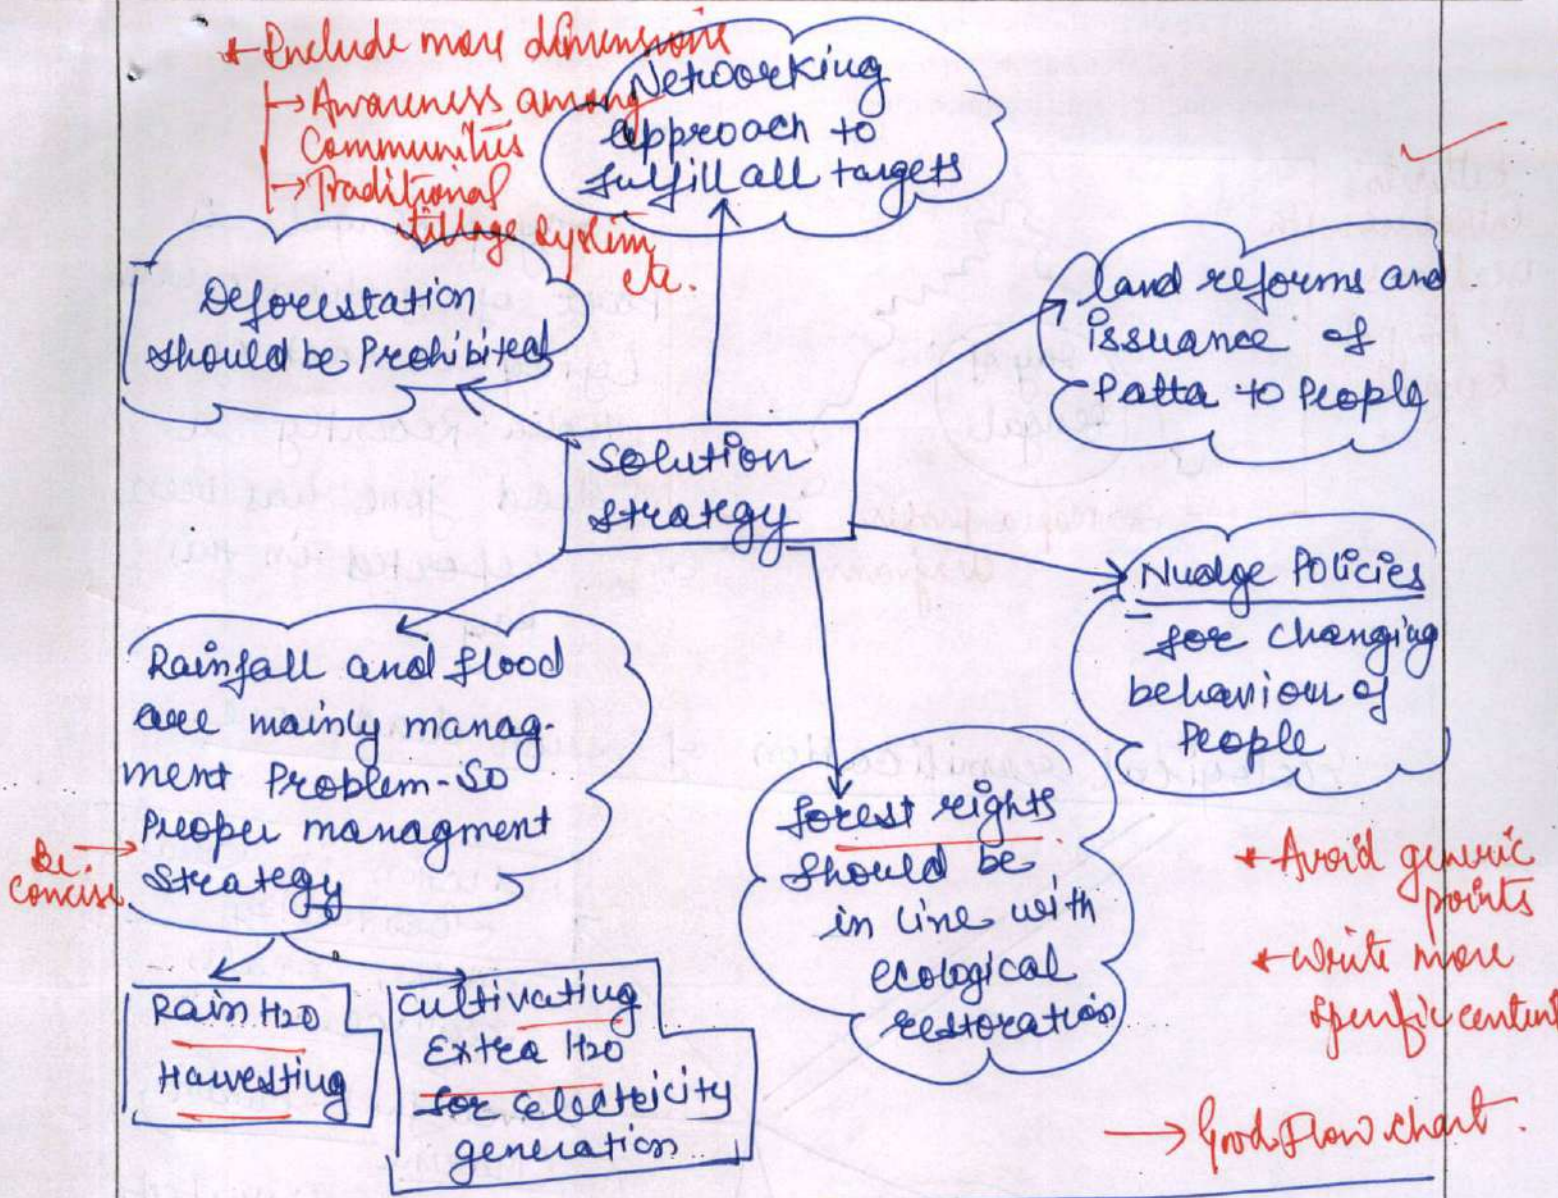 * Include more dimensions
→ Awareness among
Communities
→ Traditional
tillage system
etc.
Networking
approach to
fulfill all targets
Deforestation
should be Prohibited
land reforms and
issuance of
Patta to People
Solution
strategy
Nudge Policies
for changing
behaviour of
People
Rainfall and flood
are mainly manag-
ment Problem-so
Proper managment
strategy
Be
concise
→
forest rights
should be
in line with
ecological
restoration
* Avoid generic
points
* Write more
specific content
Rain H2O
Harvesting
Cultivating
Extra H2O
for electricity
generation
→ Good Flow chart.